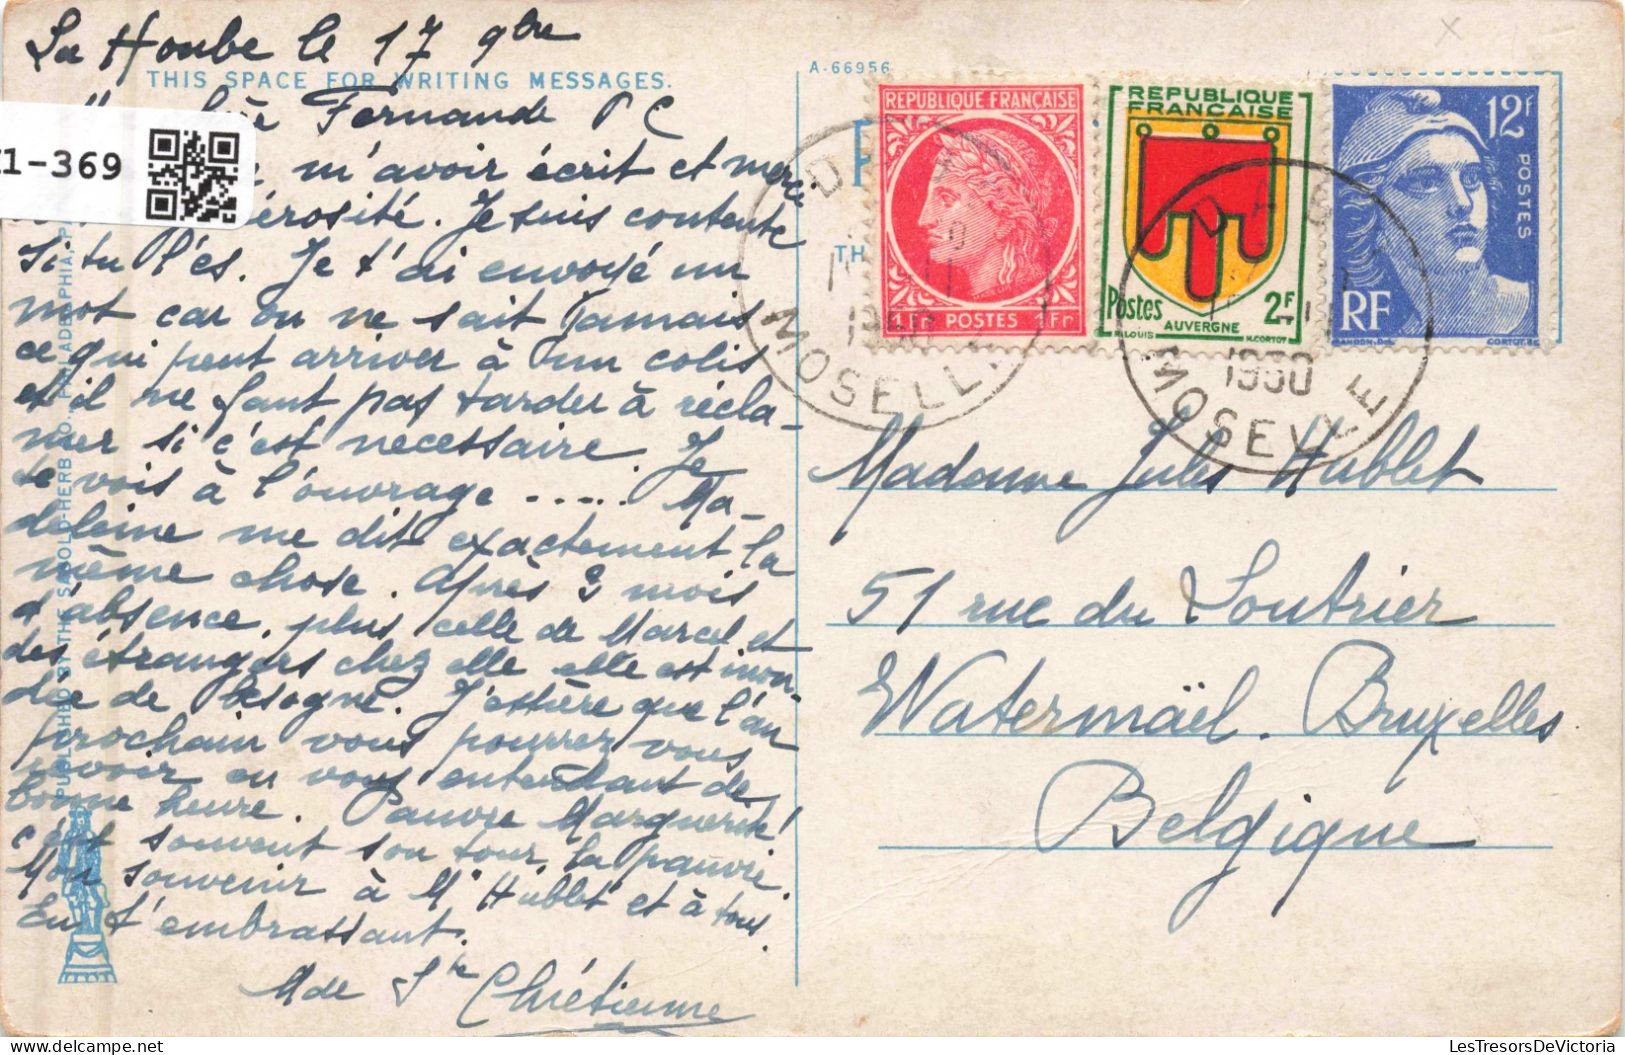 La Hoube le 17 9bre
THIS SPACE FOR WRITING MESSAGES.
Fernande P C
m'avoir écrit et merci
érosité. Je suis contente
si tu l'es. Je t'ai envoyé un
mot car on ne sait jamais
ce qui peut arriver à un colis
et il ne faut pas tarder à récla-
mer si c'est necessaire. Je
te vois à l'ouvrage ..... Ma-
deleine me dit exactement la
même chose. Après 3 mois
d'absence, plus celle de Marcel et
des étrangers chez elle elle est inon-
dée de besogne. J'espère que l'an
prochain vous pourrez vous
revoir en vous entendant de
bonne heure. Pauvre Marguerite!
c'est souvent son tour, la pauvre.
Mon souvenir à Mr Hublet et à tous.
En t'embrassant.
Mde Ste Chrétienne
1-369
PUBLISHED BY THE SABOLD-HERB CO., PHILADELPHIA, P
A-66956
REPUBLIQUE FRANÇAISE
1 Fr POSTES 1 Fr
REPUBLIQUE
FRANÇAISE
Postes 2F
AUVERGNE
R.LOUIS H.CORTOT
12F
POSTES
RF
GANDON.DEL. CORTOT.SC.
TH
DABO
1950
MOSELLE
DABO
1950
MOSELLE
Madame Jules Hublet
51 rue du Loutrier
Watermaël. Bruxelles
Belgique
LesTresorsDeVictoria